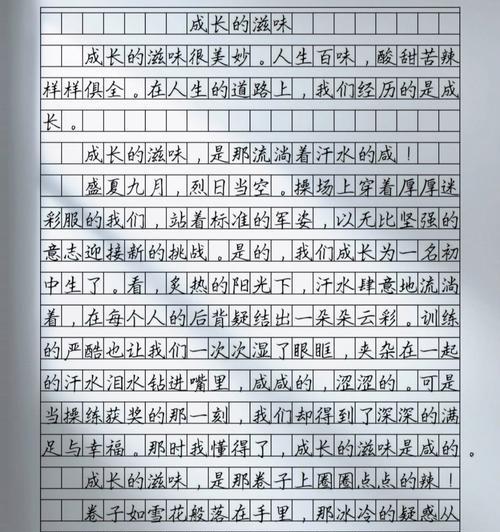 成长的滋味
成长的滋味很美妙。人生百味，酸甜苦辣
样样俱全。在人生的道路上，我们经历的是成
长。
成长的滋味，是那流淌着汗水的咸！
盛夏九月，烈日当空。操场上穿着厚厚迷
彩服的我们，站着标准的军姿，以无比坚强的
意志迎接新的挑战。是的，我们成长为一名初
中生了。看，炙热的阳光下，汗水肆意地流淌
着，在每个人的后背疑结出一朵朵云彩。训练
的严酷也让我们一次次湿了眼眶，夹杂在一起
的汗水泪水钻进嘴里，咸咸的，涩涩的。可是
当操练获奖的那一刻，我们却得到了深深的满
足与幸福。那时我懂得了，成长的滋味是咸的。
成长的滋味，是那卷子上圈圈点点的辣！
卷子如雪花般落在手里，那冰冷的疑惑从